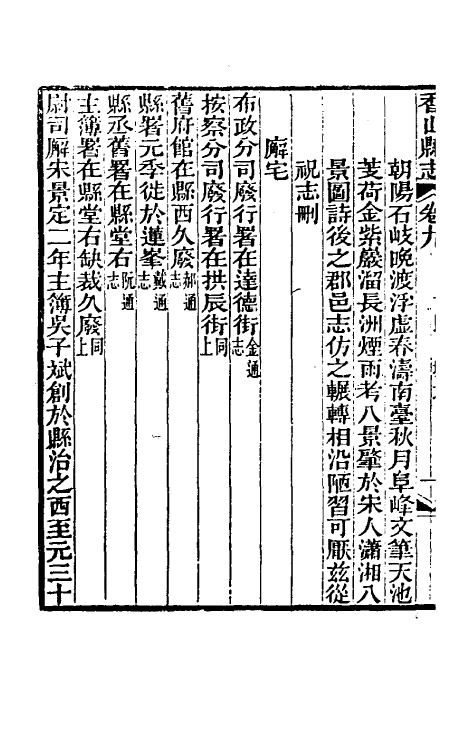 香山縣志 卷九
朝陽石岐晚渡浮虛春濤南臺秋月阜峰文筆天池
芰荷金紫巖溜長洲煙雨考八景肇於宋人瀟湘八
景圖詩後之郡邑志仿之輾轉相沿陋習可厭茲從
祝志刪
廨宅
布政分司廢行署在達德街金通志
按察分司廢行署在拱辰街同上
舊府館在縣西久廢郝通志
縣署元季徙於蓮峯戴通志
縣丞舊署在縣堂右阮通志
主簿署在縣堂右缺裁久廢同上
尉司廨宋景定二年主簿吳子斌創於縣治之西至元三十